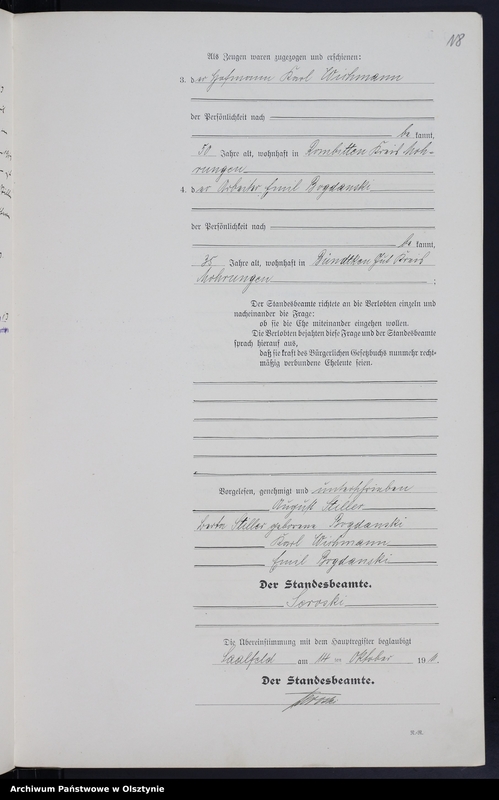 Als Zeugen waren zugezogen und erschienen:
3. der Hofmann Karl Wichmann
der Persönlichkeit nach
bekannt,
50 Jahre alt, wohnhaft in Dombitten Kreis Moh-
rungen
4. der Arbeiter Emil Bogdanski
der Persönlichkeit nach
bekannt,
35 Jahre alt, wohnhaft in Gündtken Kreis
Mohrungen ;
Der Standesbeamte richtete an die Verlobten einzeln und
nacheinander die Frage:
ob sie die Ehe miteinander eingehen wollen.
Die Verlobten bejahten diese Frage und der Standesbeamte
sprach hierauf aus,
daß sie kraft des Bürgerlichen Gesetzbuchs nunmehr recht-
mäßig verbundene Eheleute seien.
Vorgelesen, genehmigt und unterschrieben
August Stiller
Berta Stiller geborene Bogdanski
Karl Wichmann
Emil Bogdanski
Der Standesbeamte.
Soroski
Die Übereinstimmung mit dem Hauptregister beglaubigt
Saalfeld am 14 ten Oktober 19
Der Standesbeamte.
R.-R.
Archiwum Państwowe w Olsztynie